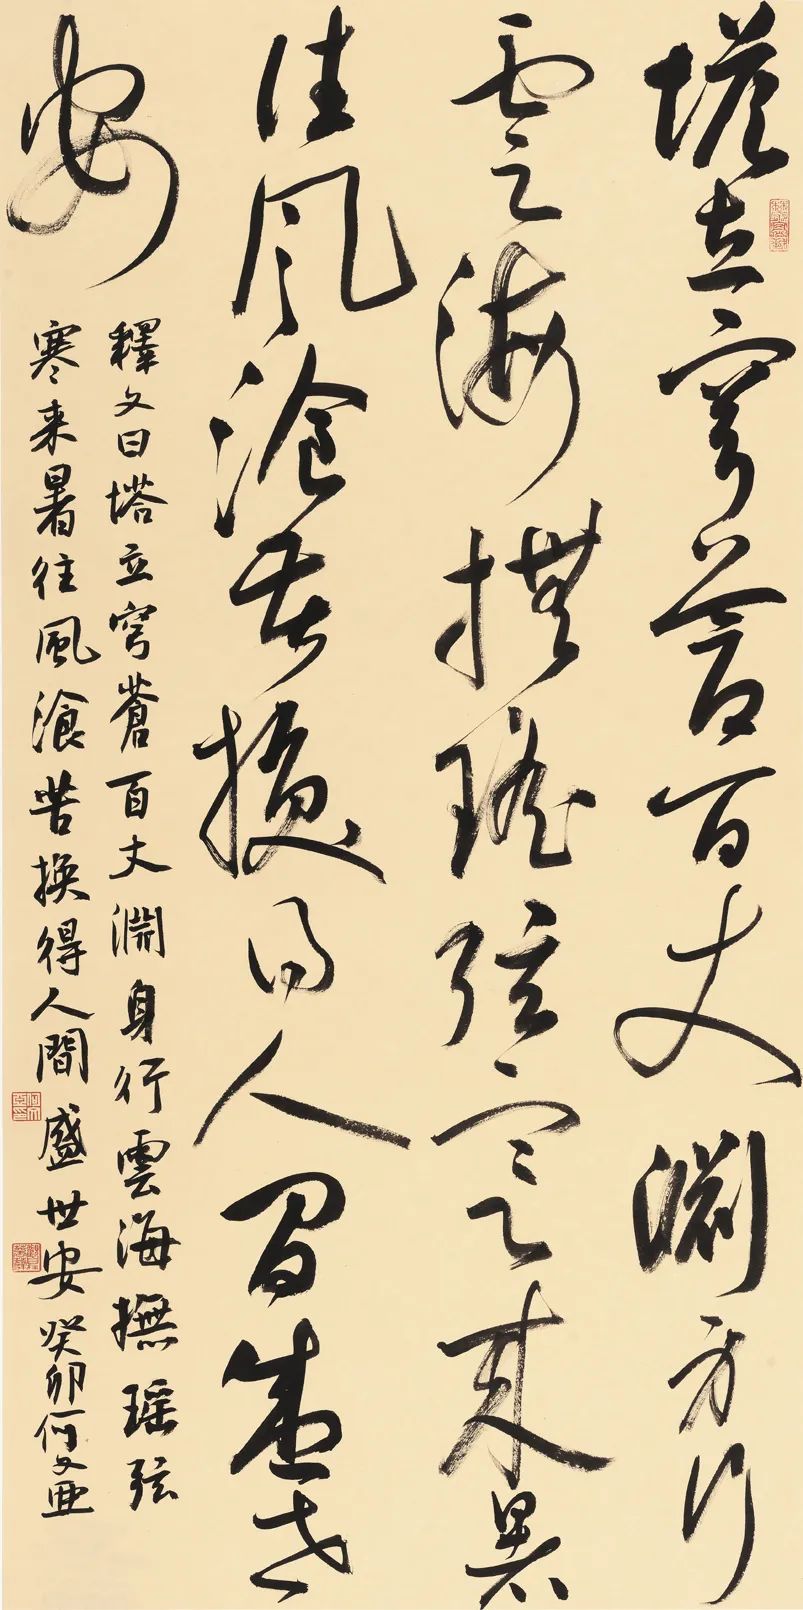 塔立穹蒼百丈淵身行
雲海撫瑤弦寒来暑
往風滄苦換得人間盛世
安
釋文曰塔立穹蒼百丈淵身行雲海撫瑶弦
寒来暑往風滄苦換得人間盛世安癸卯何文亜